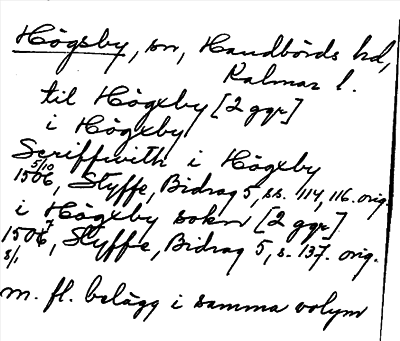 Högsby, sn, Handbörds hd,
Kalmar l.
til Högxby [2 ggr]
i Högxby
Scriffwith i Högxby
5/10
1506, Styffe, Bidrag 5, ss. 114, 116. orig.
i Högxby sokn [2 ggr]
1507, Styffe, Bidrag 5, s. 137. orig.
8/1
m. fl. belägg i samma volym